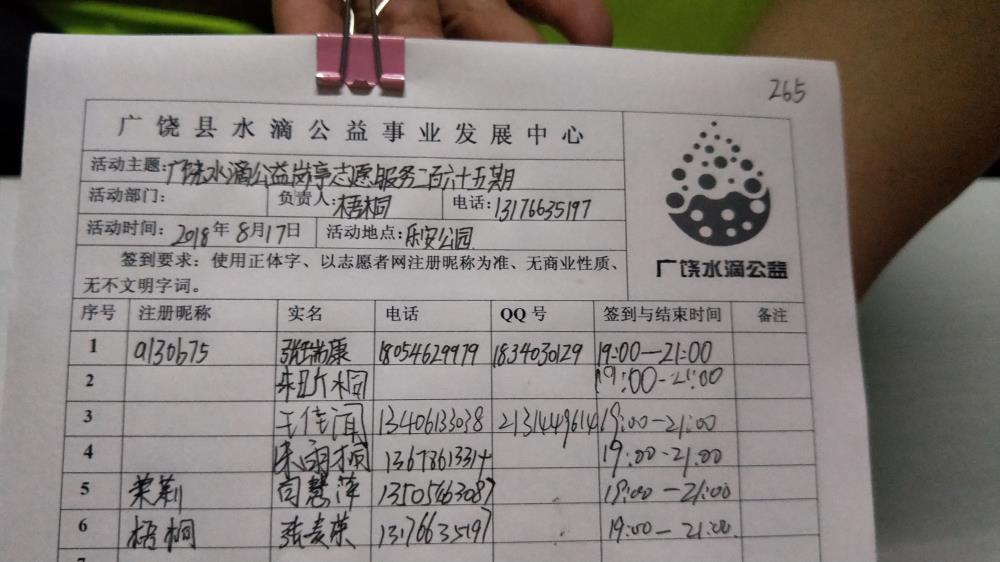 265
广饶县水滴公益事业发展中心
活动主题:广饶水滴公益岗亭志愿服务二百六十五期
活动部门: 负责人:梧桐 电话:13176635197
活动时间: 2018年8月17日 活动地点:乐安公园
签到要求:使用正体字、以志愿者网注册昵称为准、无商业性质、
无不文明字词。
广饶水滴公益
序号 注册昵称 实名 电话 QQ号 签到与结束时间 备注
1 a130675 张瑞康 18054629979 1834030129 19:00—21:00
2 19:00-21:00
3 王佳闻 13406133038 2131449614 19:00-21:00
4 朱雨桐 19:00-21:00
5 茉莉 闫慧萍 13505463087 19:00-21:00
6 梧桐 13176635197 19:00-21:00.
7